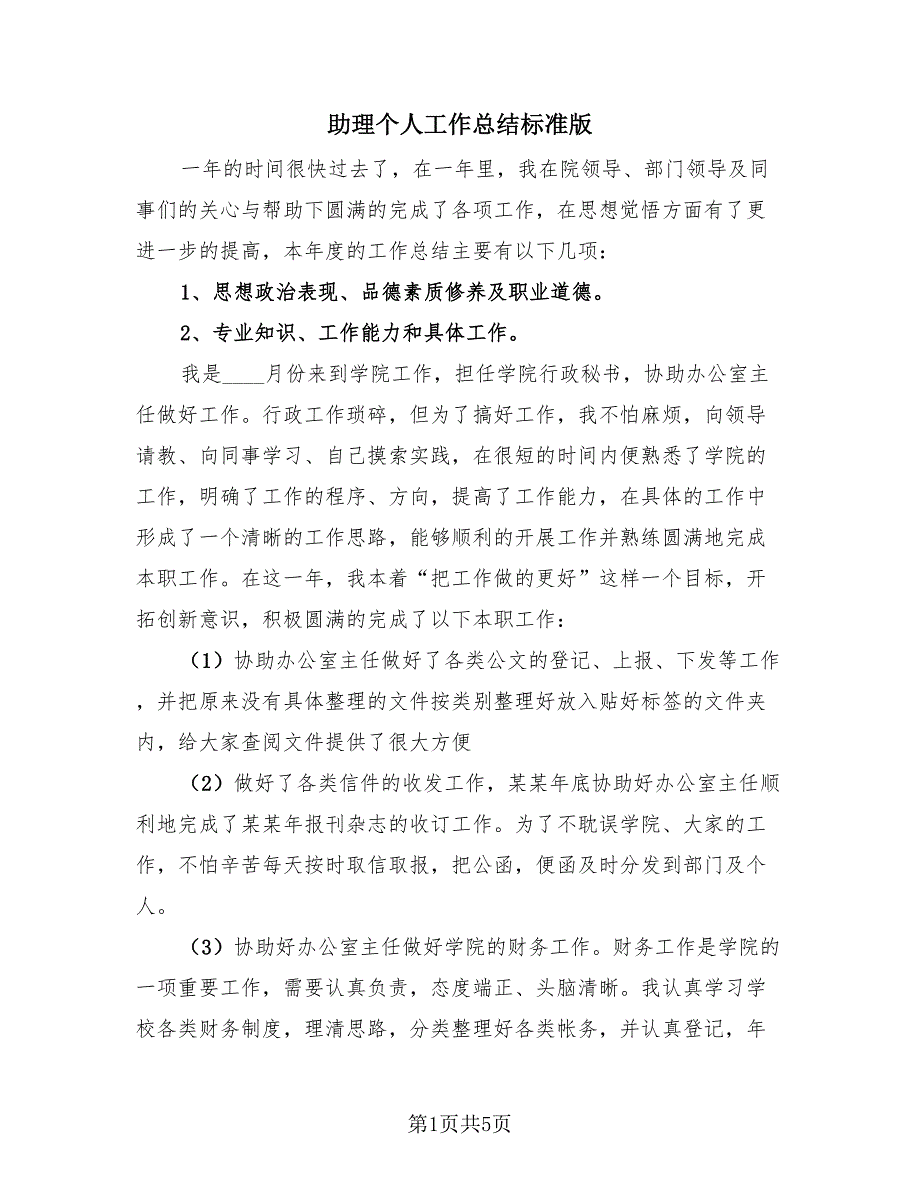 助理个人工作总结标准版
一年的时间很快过去了，在一年里，我在院领导、部门领导及同
事们的关心与帮助下圆满的完成了各项工作，在思想觉悟方面有了更
进一步的提高，本年度的工作总结主要有以下几项：
1、思想政治表现、品德素质修养及职业道德。
2、专业知识、工作能力和具体工作。
我是____月份来到学院工作，担任学院行政秘书，协助办公室主
任做好工作。行政工作琐碎，但为了搞好工作，我不怕麻烦，向领导
请教、向同事学习、自己摸索实践，在很短的时间内便熟悉了学院的
工作，明确了工作的程序、方向，提高了工作能力，在具体的工作中
形成了一个清晰的工作思路，能够顺利的开展工作并熟练圆满地完成
本职工作。在这一年，我本着“把工作做的更好”这样一个目标，开
拓创新意识，积极圆满的完成了以下本职工作：
（1）协助办公室主任做好了各类公文的登记、上报、下发等工作
，并把原来没有具体整理的文件按类别整理好放入贴好标签的文件夹
内，给大家查阅文件提供了很大方便
（2）做好了各类信件的收发工作，某某年底协助好办公室主任顺
利地完成了某某年报刊杂志的收订工作。为了不耽误学院、大家的工
作，不怕辛苦每天按时取信取报，把公函，便函及时分发到部门及个
人。
（3）协助好办公室主任做好学院的财务工作。财务工作是学院的
一项重要工作，需要认真负责，态度端正、头脑清晰。我认真学习学
校各类财务制度，理清思路，分类整理好各类帐务，并认真登记，年
第1页共5页